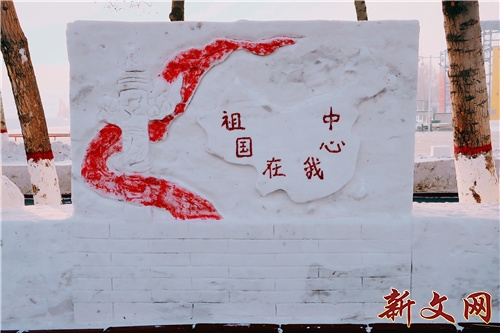 祖国在我心中
新文网